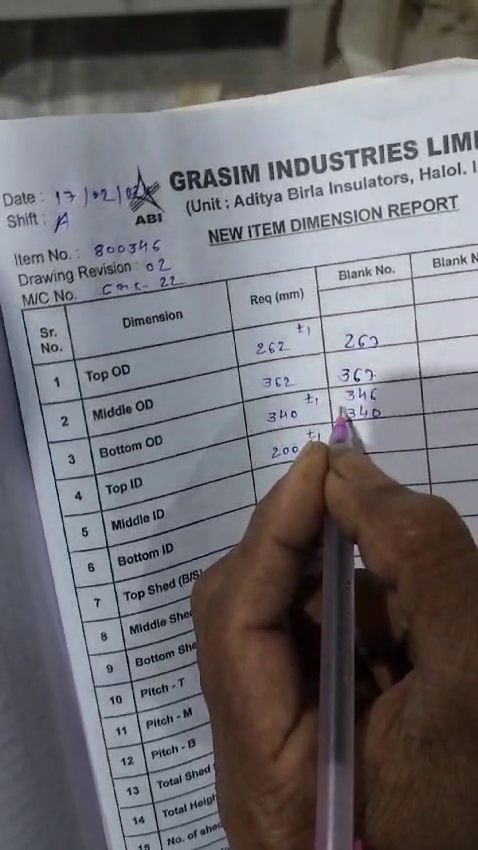 GRASIM INDUSTRIES
(Unit : Aditya Birla Insulators, Halol.
ABI
NEW ITEM DIMENSION REPORT
Date : 17/02/
Shift : A
Item No. : 800346
Drawing Revision : 02
M/C No. cnc-22
Sr. No. Dimension Req (mm) Blank No. Blank
1 Top OD 262 ±1 267
2 Middle OD 362 367
3 Bottom OD 340 ±1 346 340
4 Top ID 200 ±1
5 Middle ID
6 Bottom ID
7 Top Shed (B/S)
8 Middle
9 Bottom
10 Pitch - T
11 Pitch - M
12 Pitch - B
13 Total Shed
14 Total
15 No. of